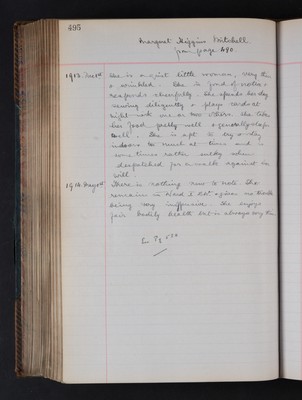 495
Margaret Higgins Mitchell
from page 490.
1913 Dec 1st She is a quiet little woman, very thin
& wrinkled. She is fond of
responds cheerfully. She spends her day
sewing diligently & plays cards at
night with one or two others. She takes
her food fairly well & generally sleeps
well. She is apt to stay
indoors too much at times and is
sometimes rather sulky when
despatched for a walk against her
will.
1914 May There is nothing new to note. She
remains in Ward I
being very inoffensive. She enjoys
fair bodily health but is always very thin.